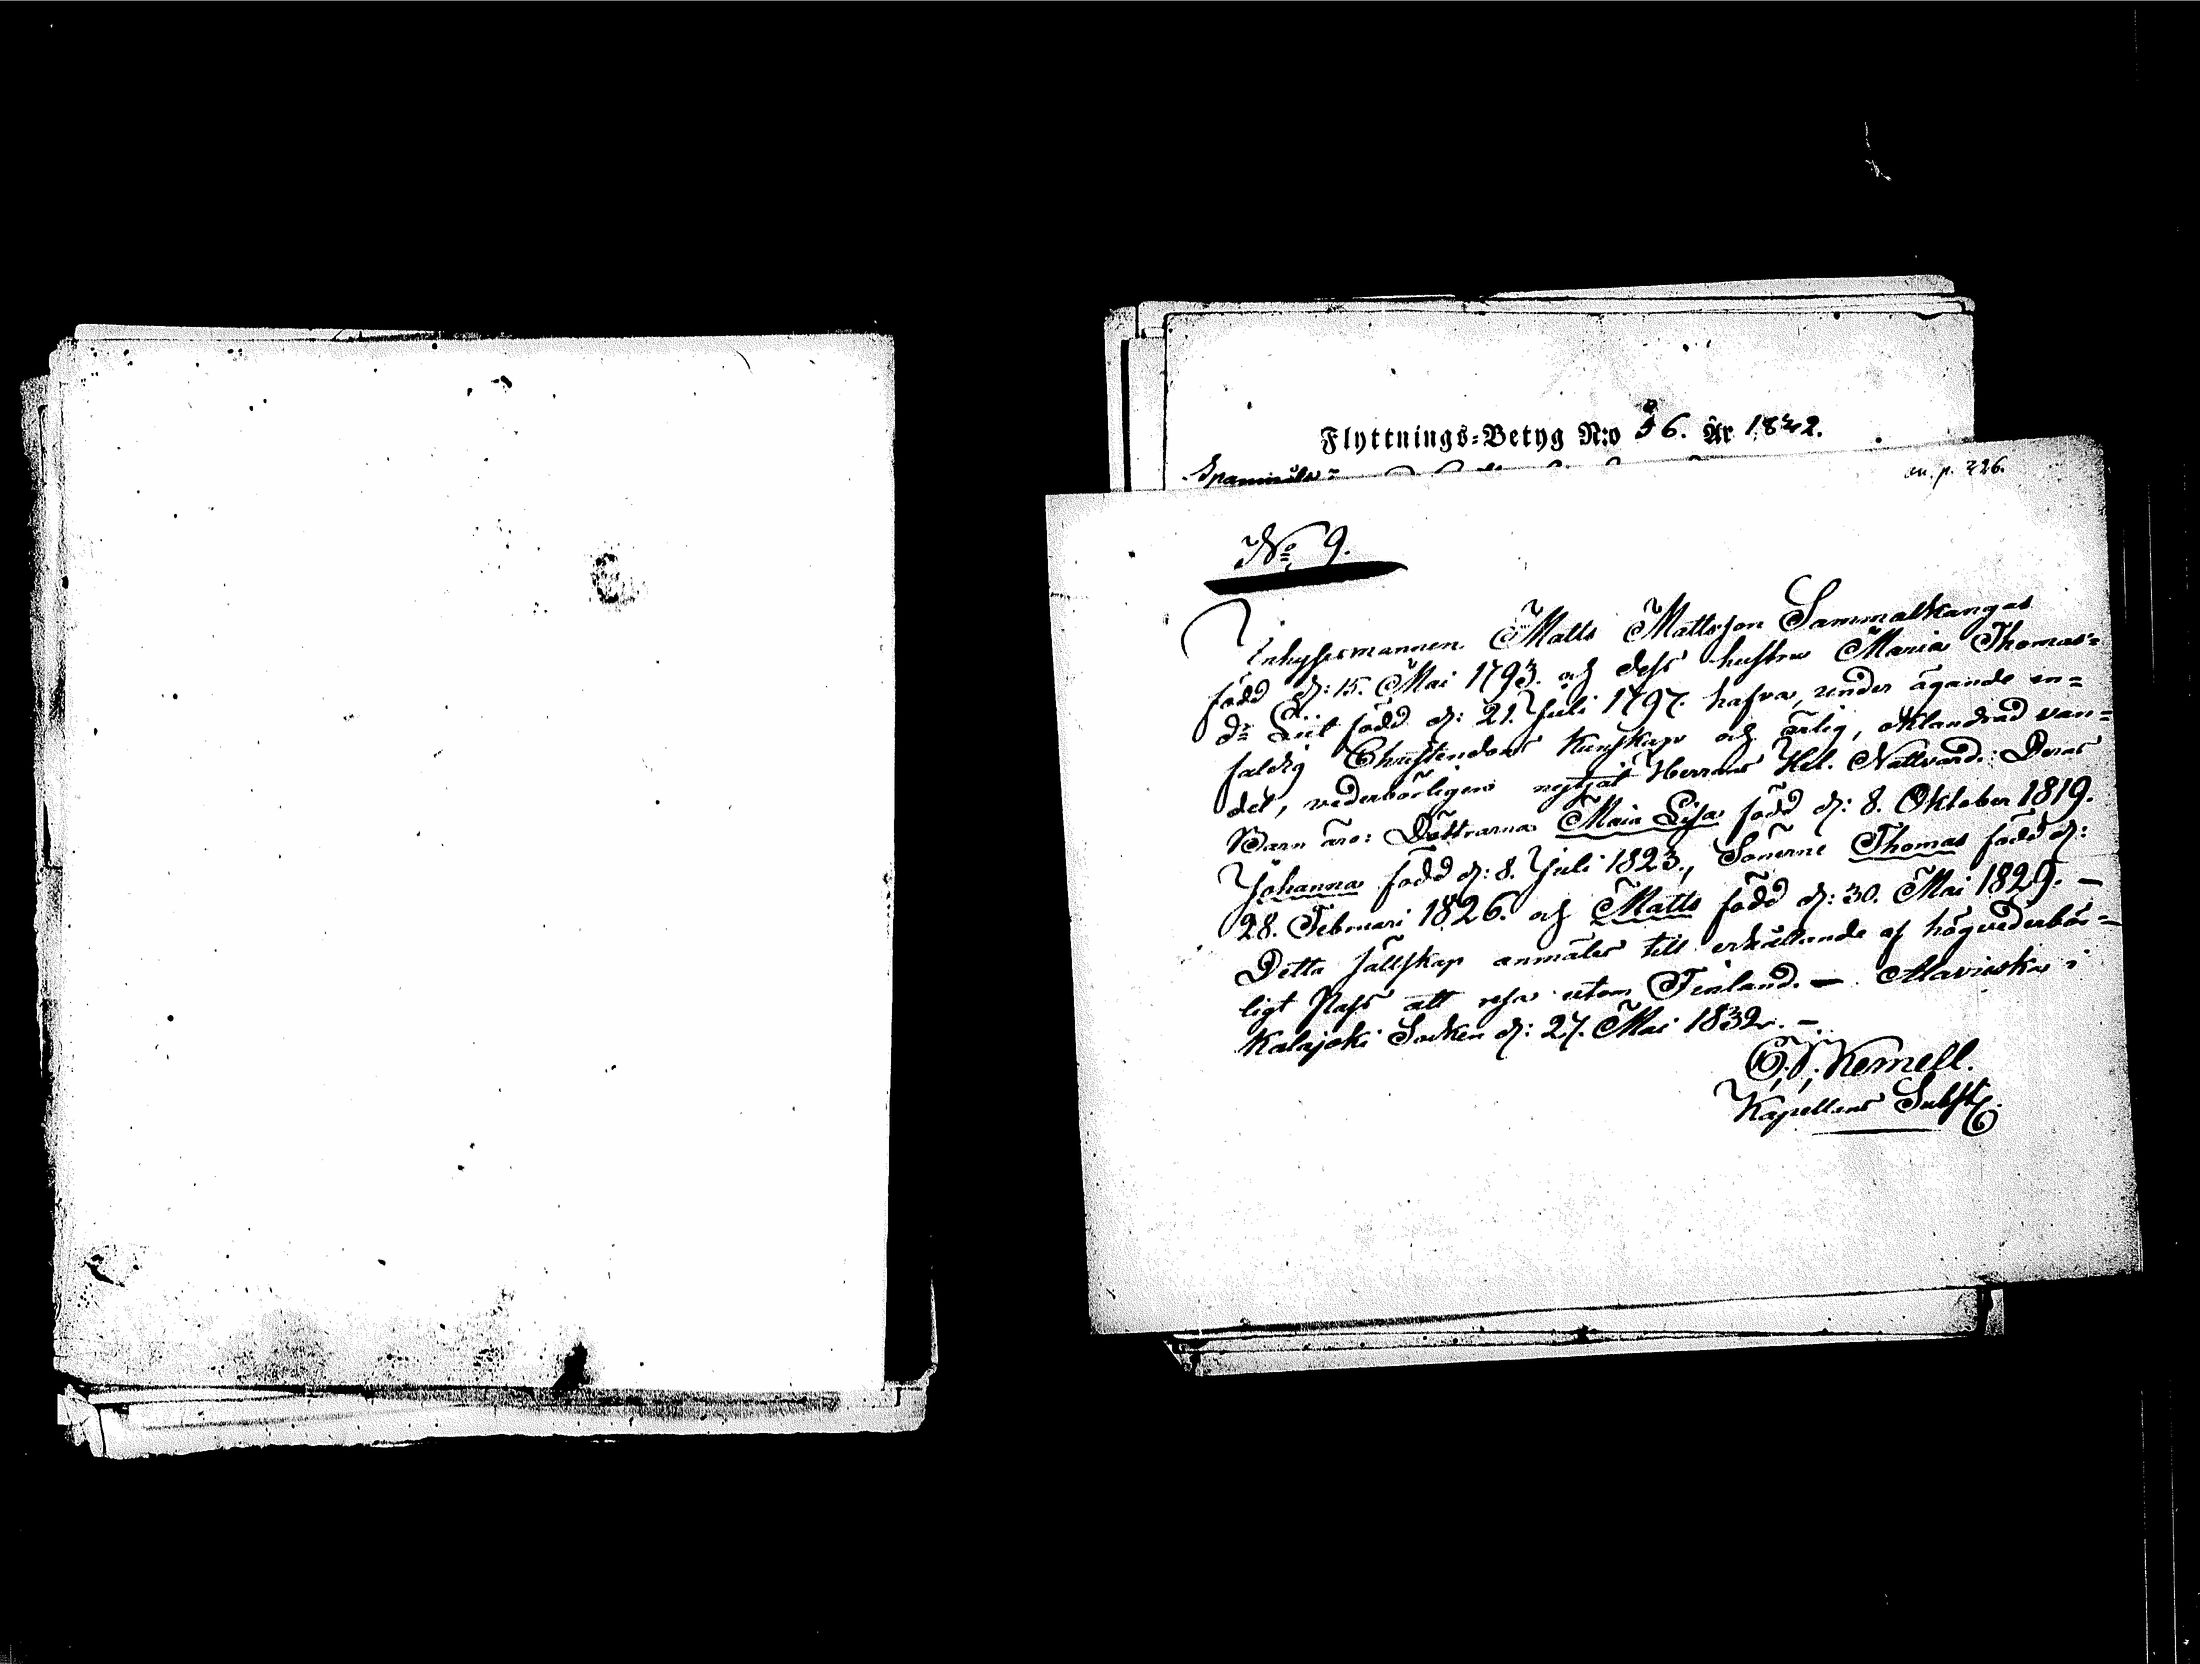 Flyttnings-Betyg N:o 36. År 1842.
an. p. 226.
No 9.
Inhysesmannen Matts Mattsson Sammalkangas
född d: 15. Mai 1793. och dess hustru Maria Thomas=
dr född d: 21. Juli 1797. hafva, under ägande en=
faldig Christendoms kunskap och ärlig, oklandrad van=
del, vederbörligen nytjat Herrans Hel. Nattvard. Deras
Barn äro: Döttrarna Maia Lisa född d: 8. Oktober 1819.
Johanna född d: 8. Juli 1823., Sönerne Thomas född d:
28. Februari 1826. och Matts född d: 30. Mai 1829. —
Detta sällskap anmäles till erhållande af högvederbör=
ligt Pass att resa utom Finland. — Alavieska i
Kalajoki Socken d: 27. Mai 1832. —
Kemell.
Kapellans Subst.